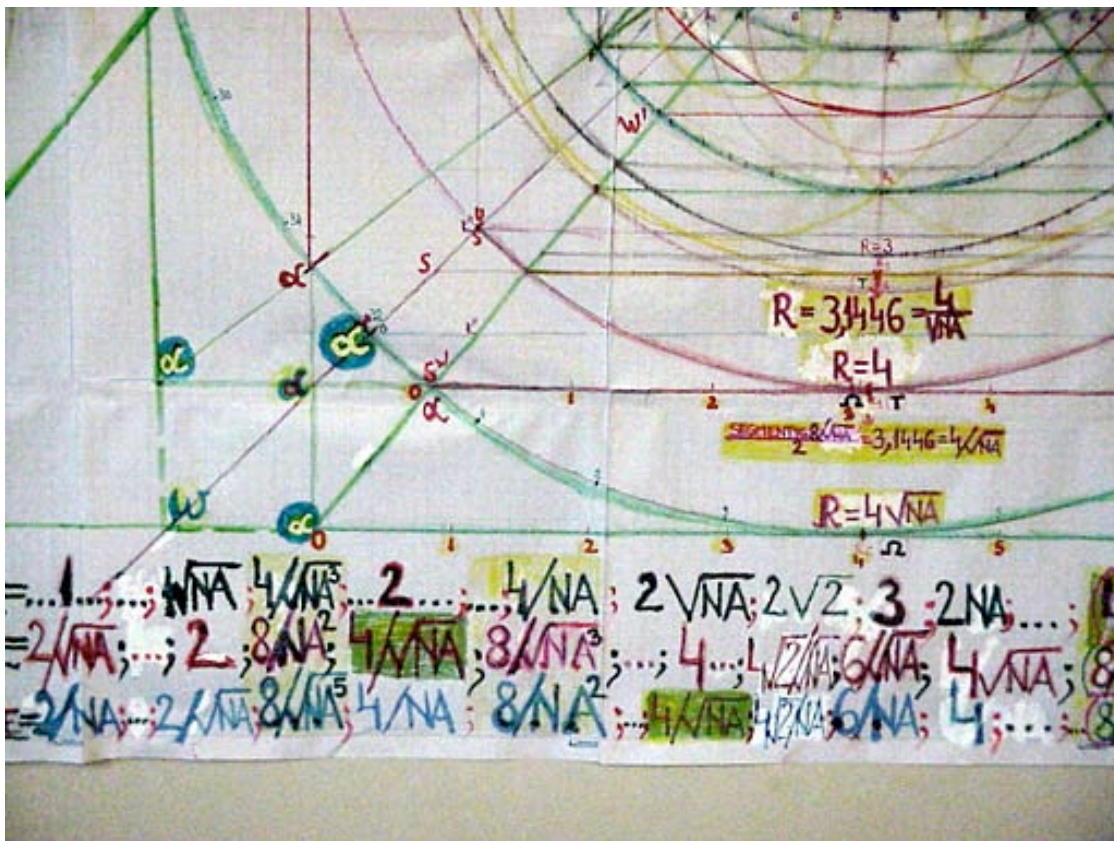 W'
R=3
T
S
S
α
R = 3,1446 = 4/√NA
R=4
α
α
SW
1 2 Ω T 4
α
α
SEGMENT 8/√NA = 3,1446 = 4/√NA
2
R=4√NA
W
α
0 1 2 3 4 Ω 5
=...1...;...; √NA; 4/√NA³; ...2...; ...; 4/NA; 2√NA; 2√2; 3; 2NA; ...;
=2/√NA; ...; 2; 8/NA²; 4/√NA; 8/√NA³; ...; 4...; 4√2/√NA; 6/√NA; 4√NA; (8
=2/NA; ...; 2/√NA; 8/√NA⁵; 4/NA; 8/NA²; ...; 4/√NA; 4√2/NA; 6/NA; 4; ...; (8